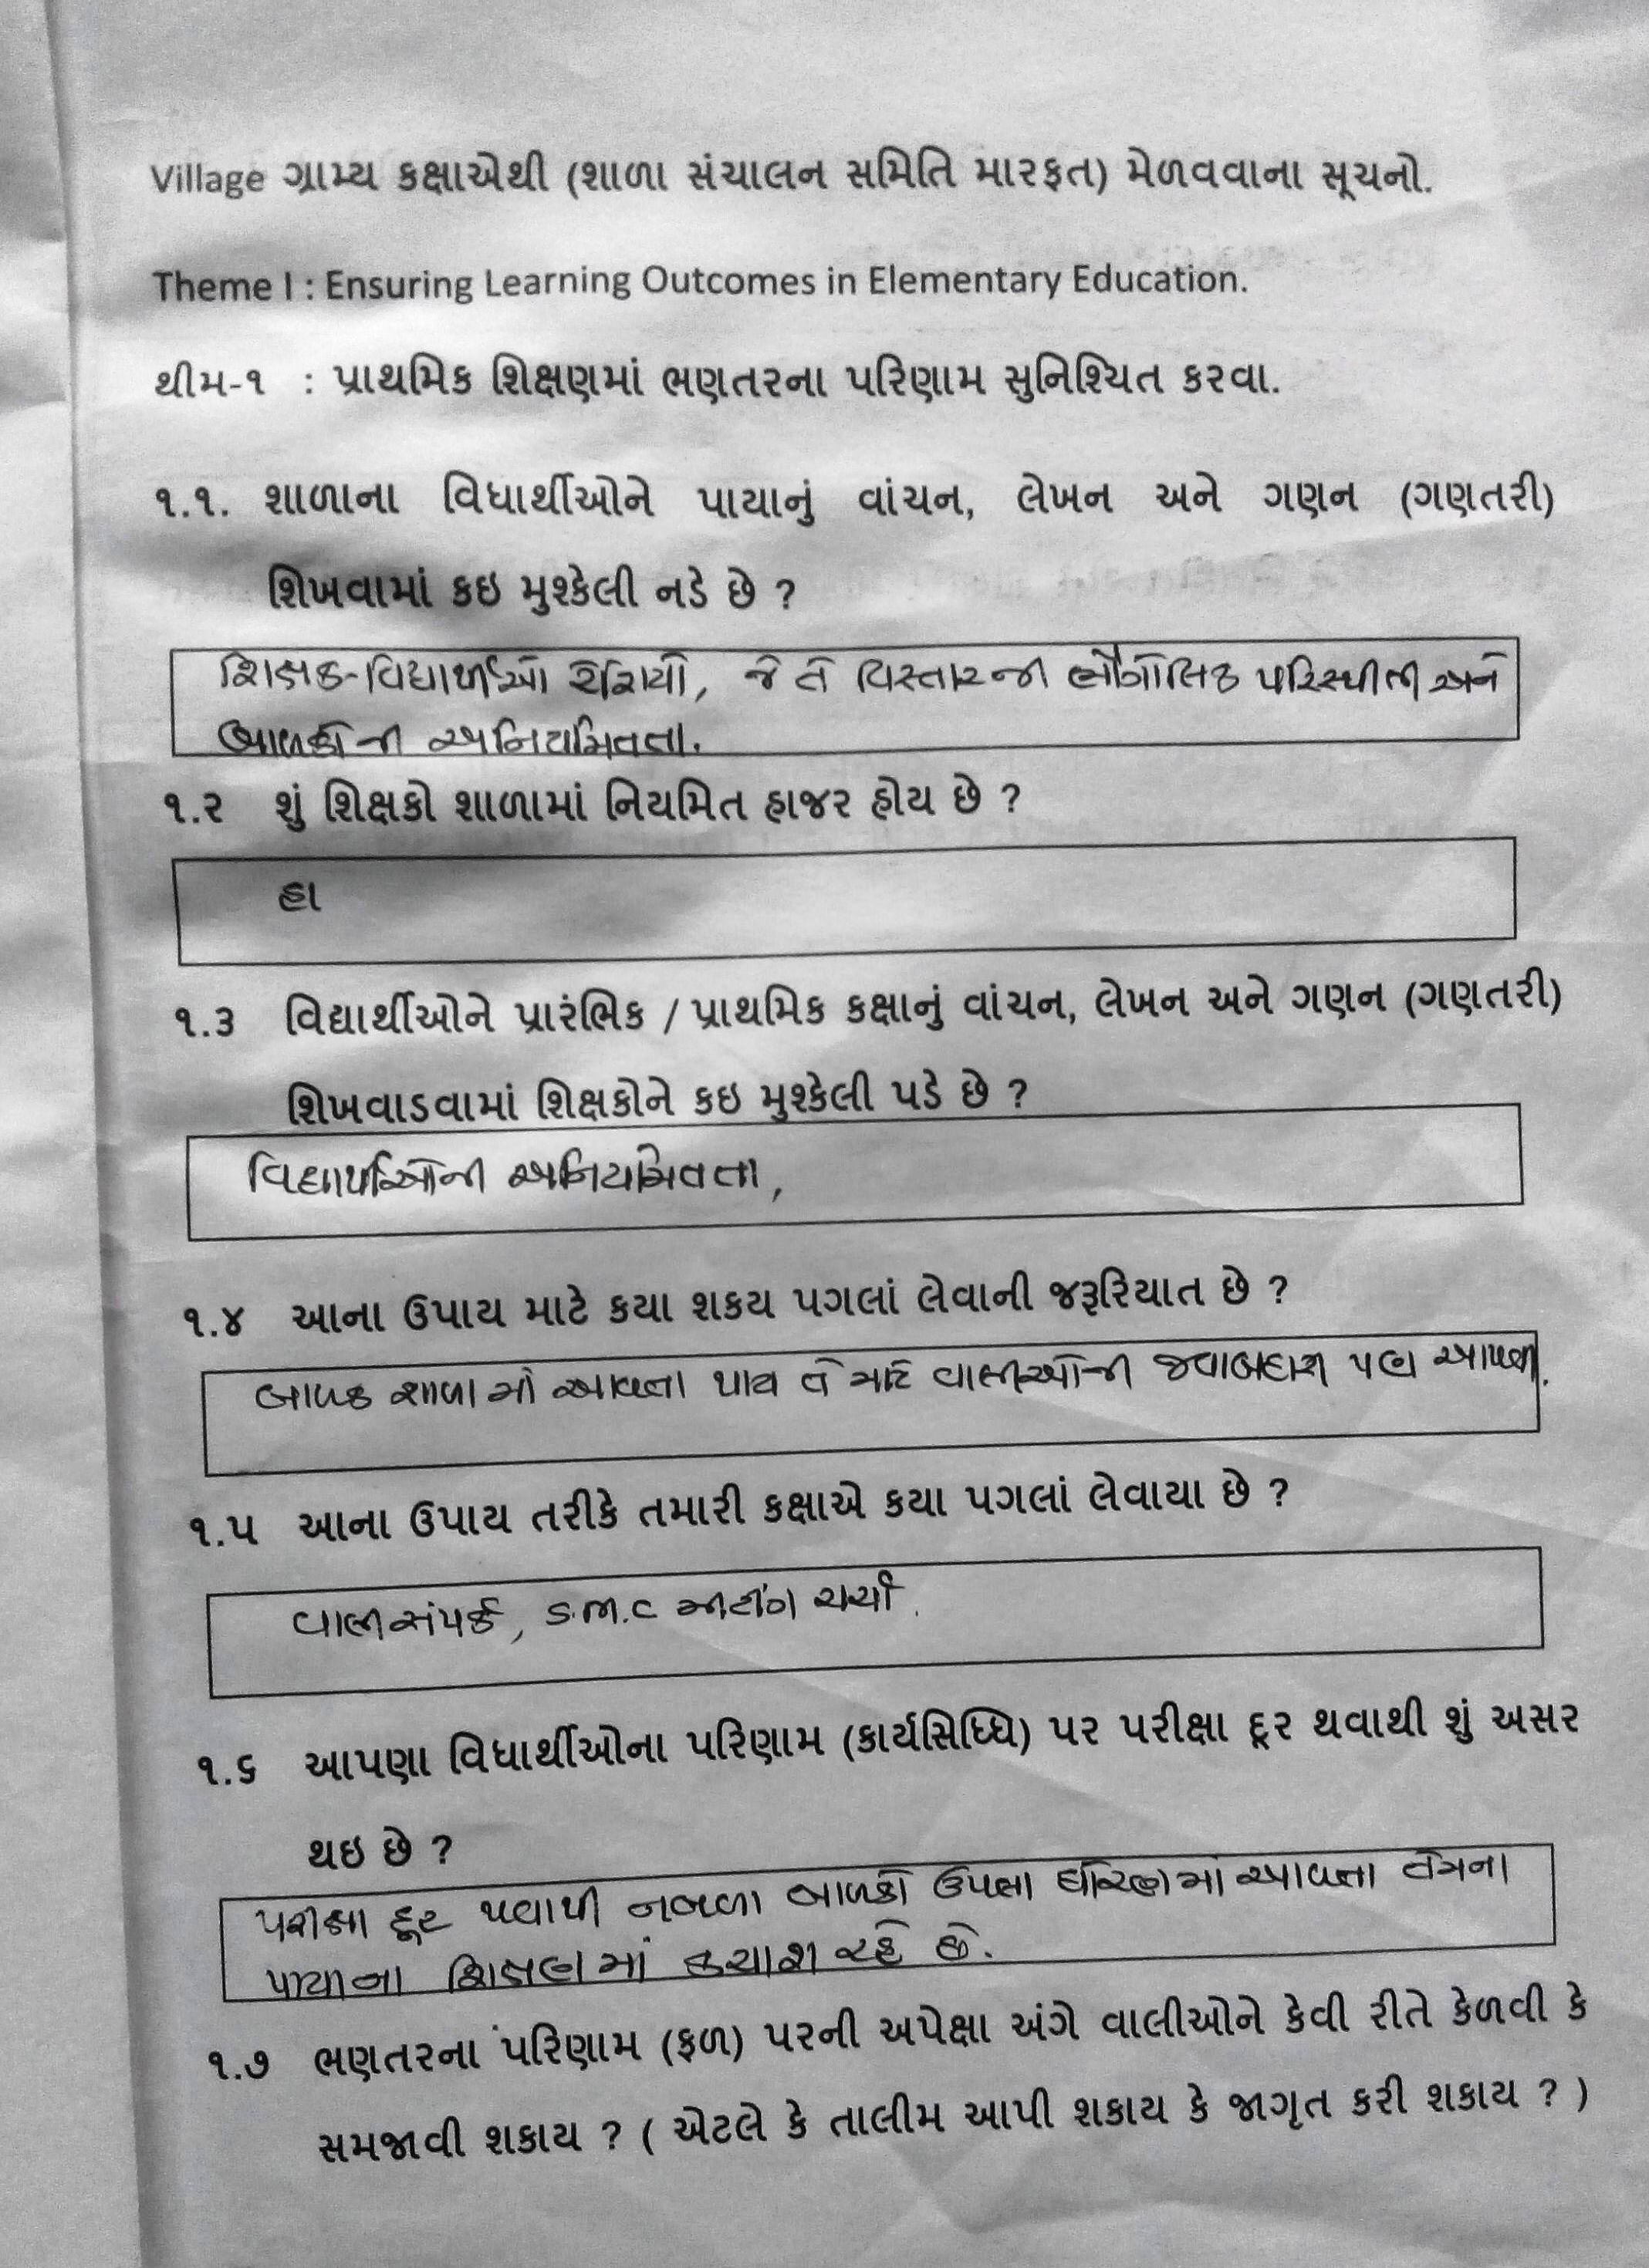 Village ગ્રામ્ય કક્ષાએથી (શાળા સંચાલન સમિતિ મારફત) મેળવવાના સૂચનો.
Theme I : Ensuring Learning Outcomes in Elementary Education.
થીમ-૧ : પ્રાથમિક શિક્ષણમાં ભણતરના પરિણામ સુનિશ્ચિત કરવા.
૧.૧. શાળાના વિધાર્થીઓને પાયાનું વાંચન, લેખન અને ગણન (ગણતરી)
શિખવામાં કઇ મુશ્કેલી નડે છે ?
શિક્ષક-વિદ્યાર્થીઓ રેશિયો, જે તે વિસ્તારની ભૌગોલિક પરિસ્થીતી અને
બાળકોની અનિયમિતતા.
૧.૨ શું શિક્ષકો શાળામાં નિયમિત હાજર હોય છે ?
હા
૧.૩ વિદ્યાર્થીઓને પ્રારંભિક / પ્રાથમિક કક્ષાનું વાંચન, લેખન અને ગણન (ગણતરી)
શિખવાડવામાં શિક્ષકોને કઇ મુશ્કેલી પડે છે ?
વિદ્યાર્થીઓની અનિયમિતતા,
૧.૪ આના ઉપાય માટે કયા શકય પગલાં લેવાની જરૂરિયાત છે ?
બાળક શાળામાં આવતા થાય તે માટે વાલીઓની જવાબદારી પણ આપવી.
૧.૫ આના ઉપાય તરીકે તમારી કક્ષાએ કયા પગલાં લેવાયા છે ?
વાલીસંપર્ક, S.M.C મીટીંગ ચર્ચા.
૧.૬ આપણા વિધાર્થીઓના પરિણામ (કાર્યસિધ્ધિ) પર પરીક્ષા દૂર થવાથી શું અસર
થઇ છે ?
પરીક્ષા દૂર થવાથી નબળા બાળકો ઉપલા ધોરણમાં આવતા તેમના
પાયાના શિક્ષણમાં કચાશ રહે છે.
૧.૭ ભણતરના પરિણામ (ફળ) પરની અપેક્ષા અંગે વાલીઓને કેવી રીતે કેળવી કે
સમજાવી શકાય ? ( એટલે કે તાલીમ આપી શકાય કે જાગૃત કરી શકાય ? )